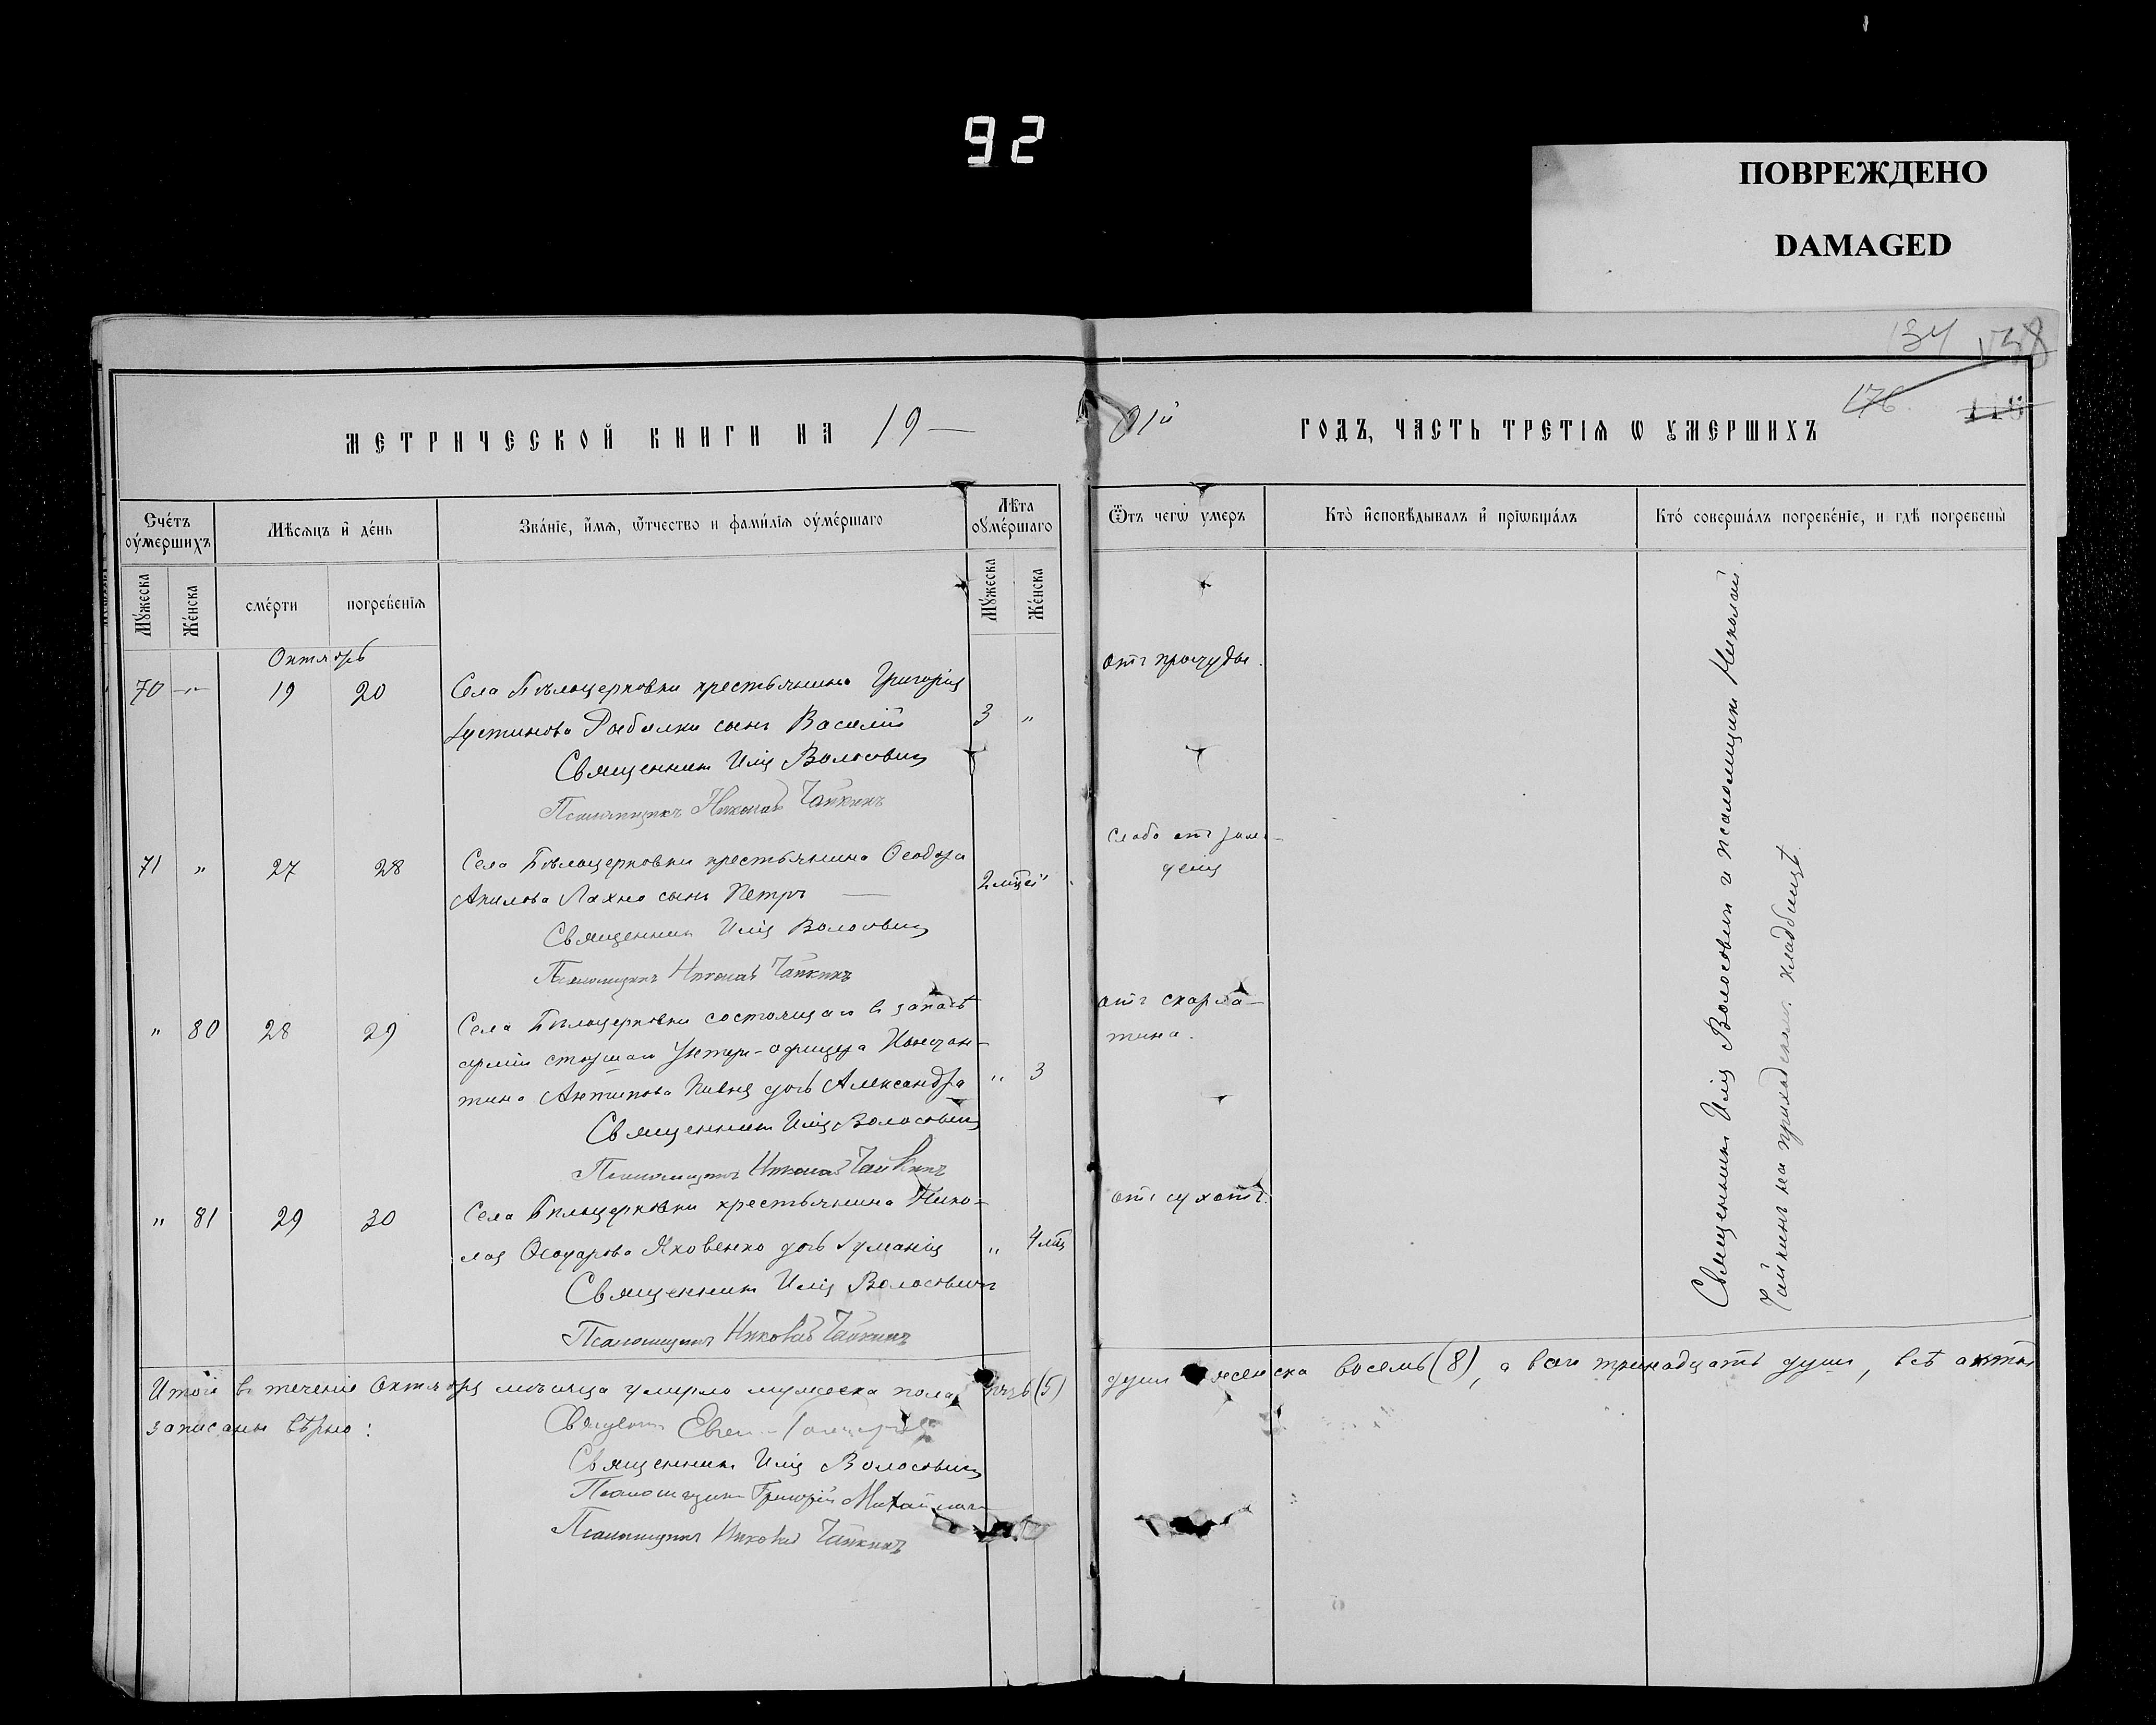 92
ПОВРЕЖДЕНО
DAMAGED
134
176.
МЕТРИЧЕСКОЙ КНИГИ НА 19—
01й ГОДЪ, ЧАСТЬ ТРЕТІѦ Ѡ УМЕРШИХЪ
Счétъ оумершихъ
Мѣсѧцъ и день
Званіе, имѧ, ѿчество и фамиліѧ оумершаго
Лѣта оумершаго
Ѿтъ чегѡ умеръ
Кто исповѣдывалъ и пріѡбщалъ
Кто совершалъ погребеніе, и гдѣ погребены
Мужеска
Женска
смерти
погребеніѧ
Мужеска
Женска
Октябрь
70 -"- 19 20 Села Бѣлоцерковки крестьянина Григорія
Іустинова Рыбалки сынъ Василій 3 "
отъ простуды.
Священникъ Илія Волосовичъ
Псаломщикъ Николай Чайкинъ
71 " 27 28 Села Бѣлоцерковки крестьянина Ѳеодора
Лахно сынъ Петръ — 2 мѣс.
Слабо отъ
Священникъ Илія Волосовичъ
Псаломщикъ Николай Чайкинъ
" 80 28 29 Села Бѣлоцерковки состоящаго въ запасѣ
арміи старшаго Унтеръ-офицера Констан-
тина Антипова Пивня дочь Александра " 3
отъ скарла-
тина.
Священникъ Илія Волосовичъ
Псаломщикъ Николай Чайкинъ
" 81 29 30 Села Бѣлоцерковки крестьянина Нико-
лая Яковенко дочь " 4 мѣс.
отъ сухотъ.
Священникъ Илія Волосовичъ
Псаломщикъ Николай Чайкинъ
Священникъ Илія Волосовичъ и псаломщикъ Николай
Чайкинъ на приходскомъ кладбищѣ.
Итого въ теченіе Октября мѣсяца умерло мужеска пола пять (5) душъ женска восемь (8), а всего тринадцать душъ, всѣ акты
записаны вѣрно:
Священникъ
Священникъ Илія Волосовичъ
Псаломщикъ Григорій
Псаломщикъ Николай Чайкинъ